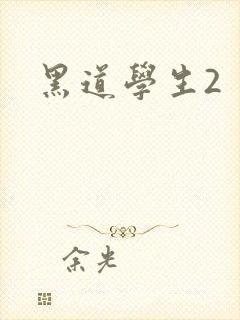 黑道學生2
余光